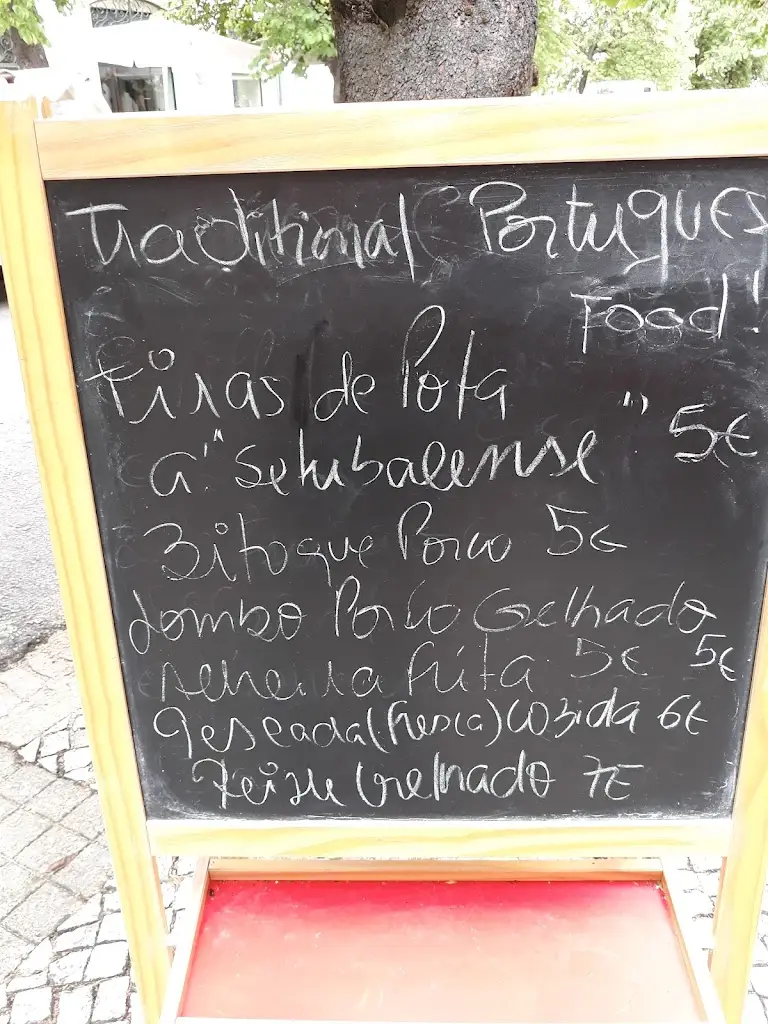 Traditional Portugues
Food!
Tiras de Pota
a "Setubalense" 5€
Bitoque Porco 5€
Lombo Porco Grelhado
5€
frita 5€
Pescada (fresca) cozida 6€
Peixe Grelhado 7€